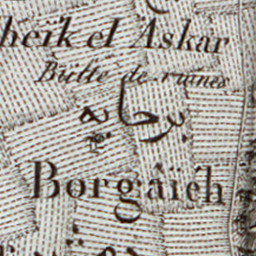 heïk el Askar
Bütte de ruines
برجايه
Borgâïéh